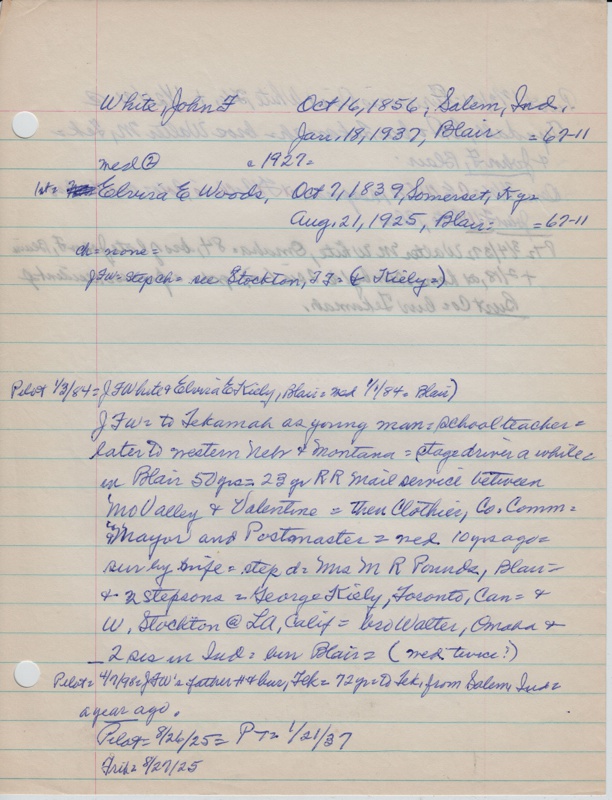 White, John F Oct 16, 1856, Salem, Ind.
Jan. 18, 1937, Blair = 67-11
med ② c 1927 =
1st = Elvira E Woods, Oct 7, 1839, Somerset, Ky =
Aug. 21, 1925, Blair = = 67-11
ch = none =
JFW = step ch = see Stockton, T J = (& Kiely =)
Pilot 1/3/84 = J F White & Elvira E Kiely, Blair = med 1/1/84 = Blair)
J F W = to Tekamah as young man = school teacher =
later to western Nebr & Montana = stage driver a while =
in Blair 50 yrs = 23 yr RR mail service between
Mo Valley & Valentine = then Clothier, Co. Comm =
& Mayor and Postmaster = med 10 yrs ago =
sur by wife = step d = Mrs M R Pounds, Blair =
& 2 stepsons = George Kiely, Toronto, Can = &
W. Stockton @ LA, Calif = bro Walter, Omaha &
2 sis in Ind = bur Blair = (med twice?)
Pilot = 4/7/98 = JFW's father + & bur, Tek = 72 yr = to Tek, from Salem, Ind =
a year ago.
Pilot = 8/26/25 = P T = 1/21/37
Trib = 8/27/25